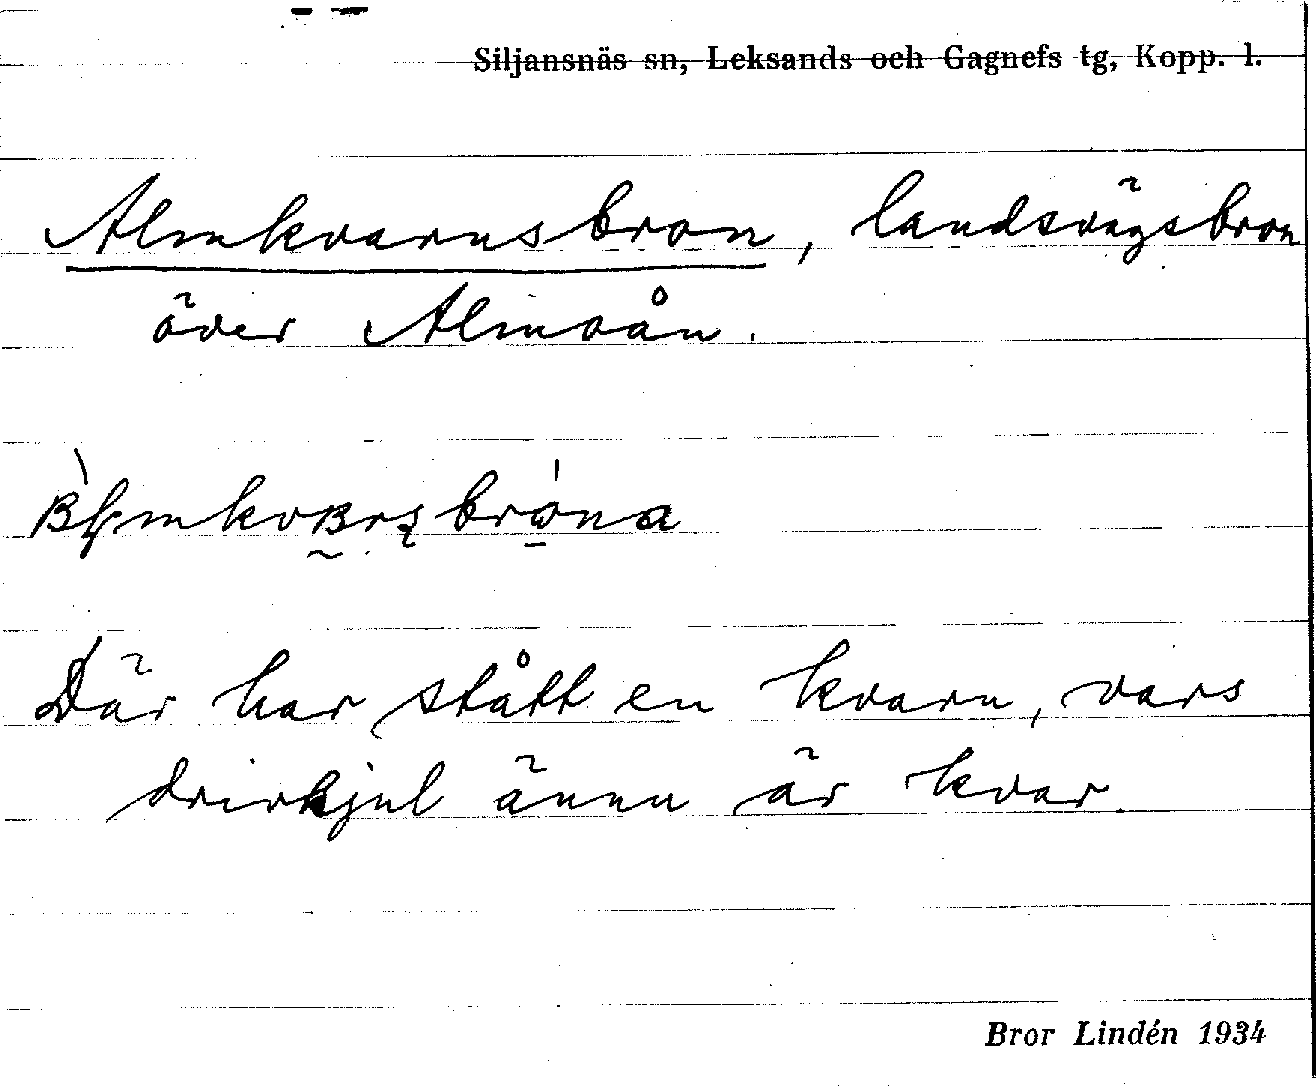 Siljansnäs sn, Leksands och Gagnefs tg, Kopp. l.
Almkvarnsbron, landsvägsbron
över Almoån.
Där har stått en kvarn, vars
drivhjul ännu är kvar.
Bror Lindén 1934